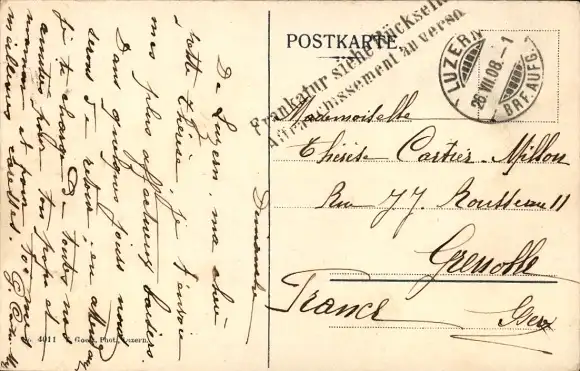 POSTKARTE.
Frankatur siehe Rückseite
Affranchissement au verso
LUZERN
26.VII.08.–1
BRF.AUFG.
Mademoiselle
Thérèse Cartier-Millon
Rue J. J. Rousseau 11
Grenoble
France
Isère
Dimanche
De Luzern, ma chère
petite Thérèse, je t'envoie
mes plus affectueux baisers.
Dans quelques jours nous
serons de retour, en attendant
je te charge de toutes nos
amitiés pour ton papa et
maman et pour toi mes
meilleures caresses.
4011 E. Goetz, Phot. Luzern.